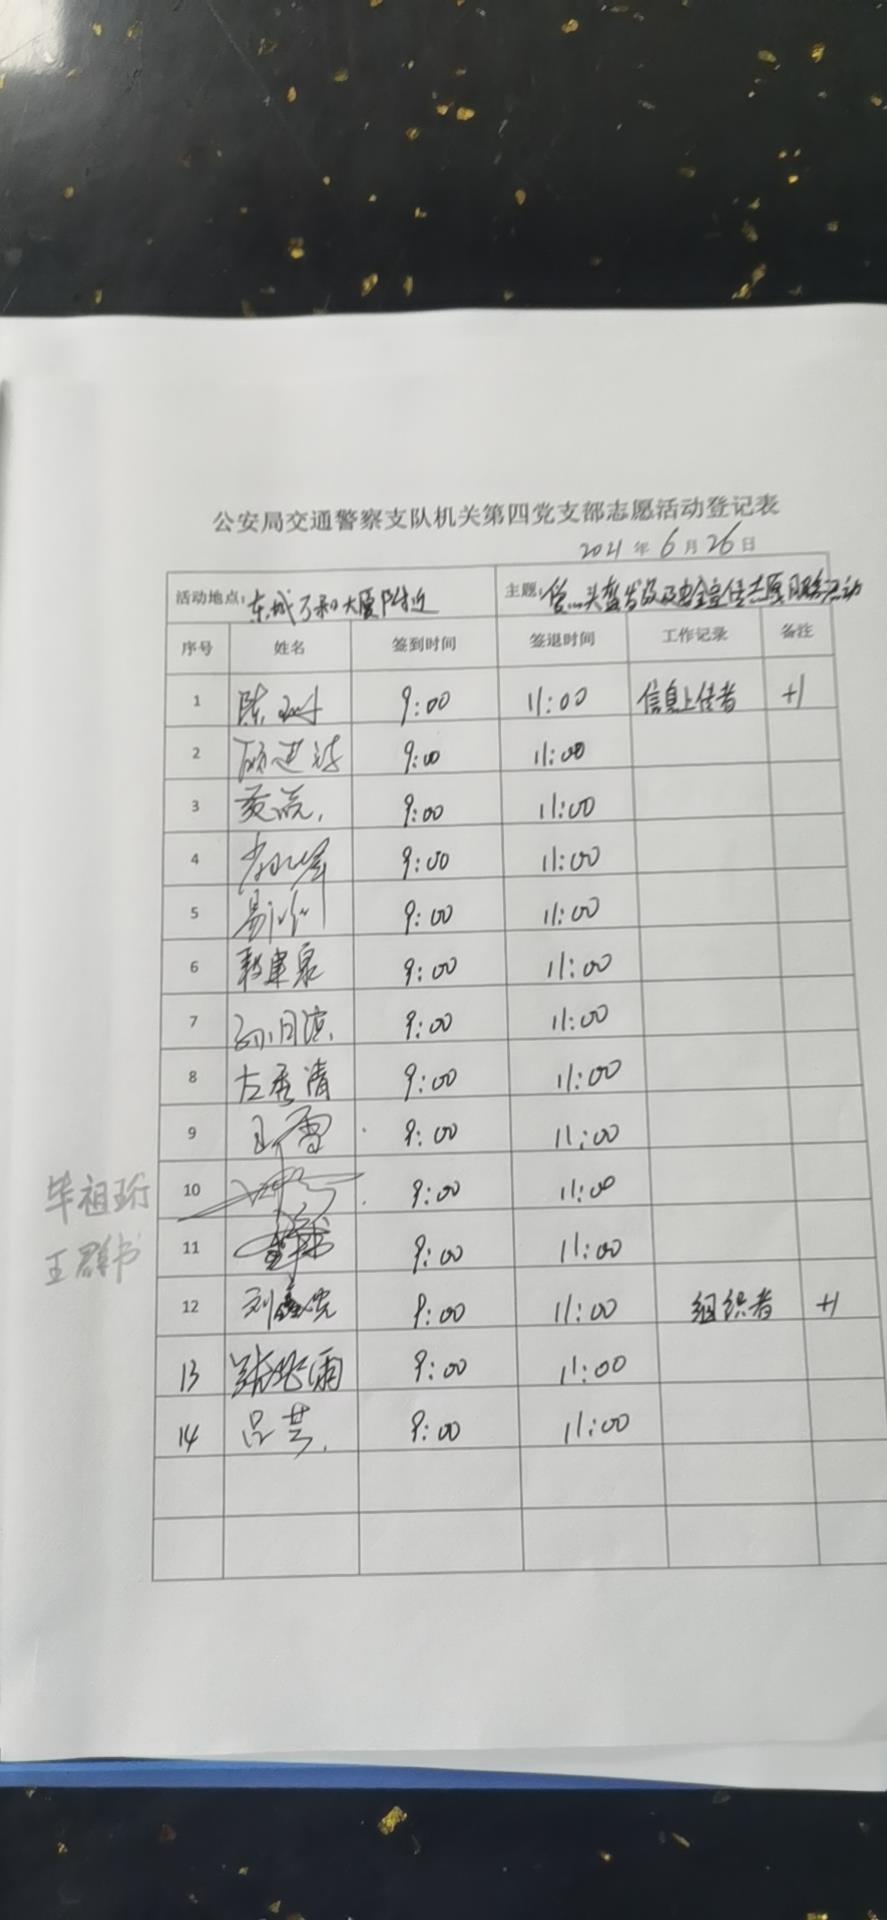 公安局交通警察支队机关第四党支部志愿活动登记表
2021年6月26日
活动地点：东城万和大厦附近 主题：头盔发放及安全宣传志愿服务活动
序号 姓名 签到时间 签退时间 工作记录 备注
1 陈 9:00 11:00 信息上传者 +1
2 9:00 11:00
3 9:00 11:00
4 9:00 11:00
5 9:00 11:00
6 9:00 11:00
7 9:00 11:00
8 左秀清 9:00 11:00
9 王雪 9:00 11:00
毕祖珩 10 9:00 11:00
王群书 11 9:00 11:00
12 刘鑫 9:00 11:00 组织者 +1
13 雨 9:00 11:00
14 吕芸 9:00 11:00